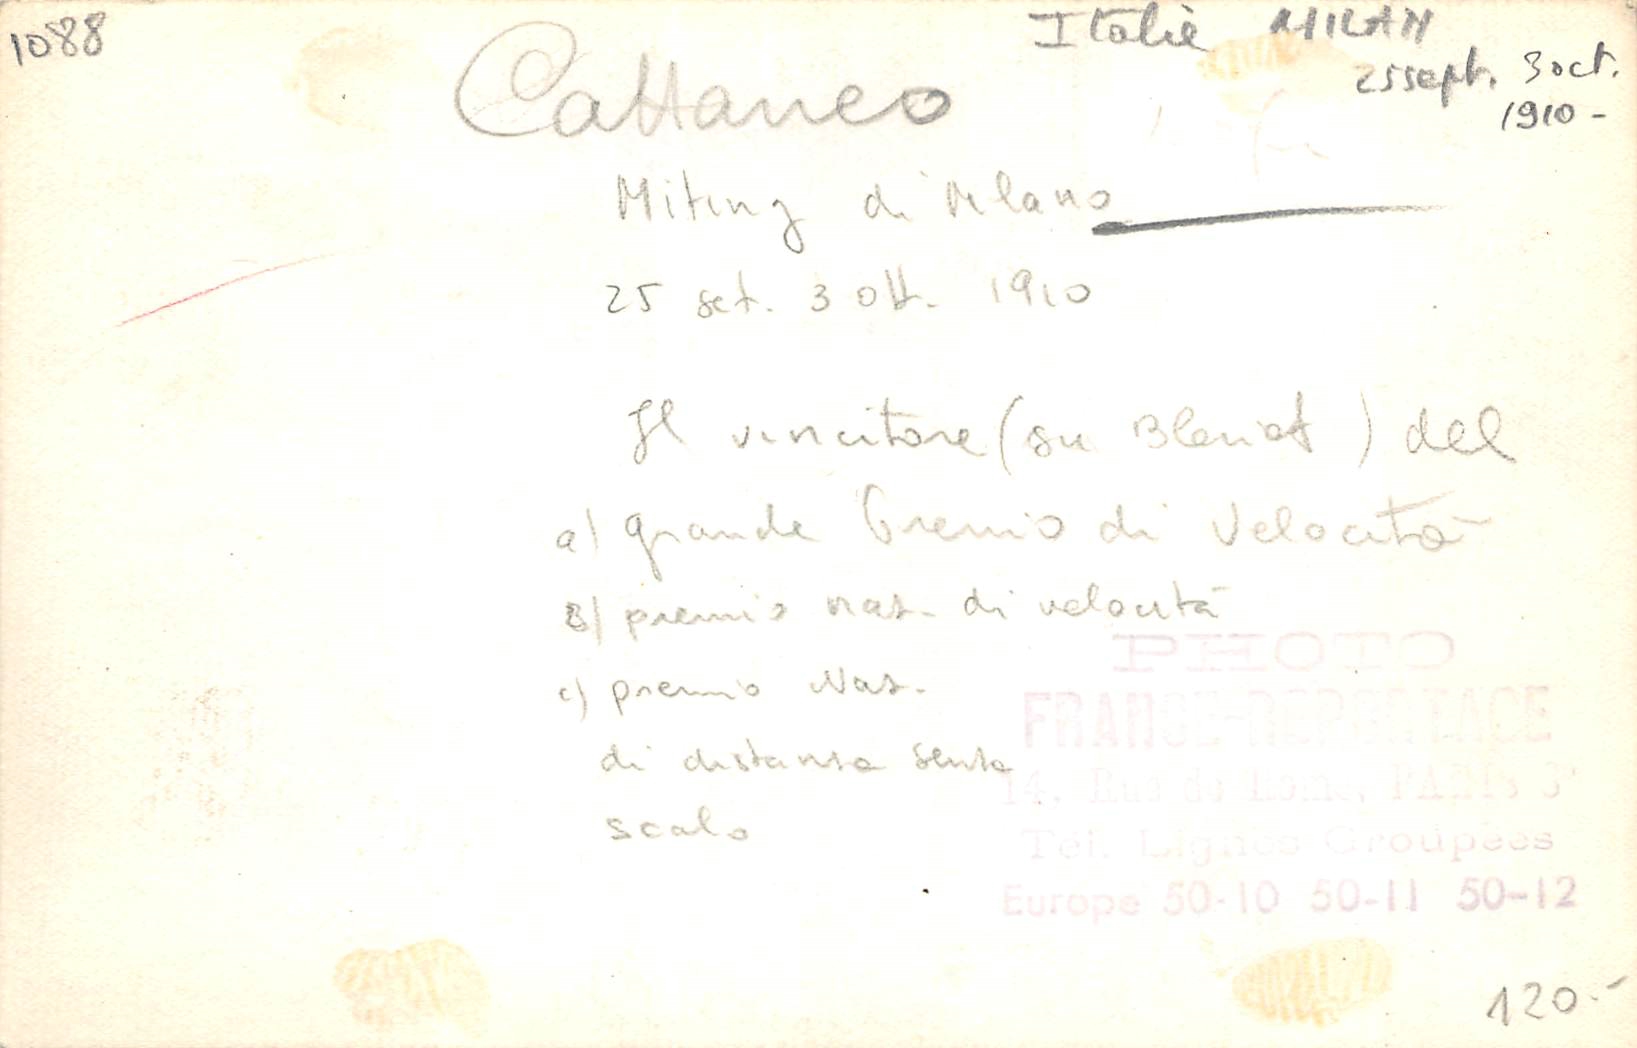 1088
Italie MILAN
25 sept. 3 oct.
1910 -
Cattaneo
Miting di Milano
25 set. 3 ott. 1910
Il vincitore (su Bleriot) del
a) grande Premio di Velocità
B) premio naz. di velocità
c) premio Naz.
di distanza senza
scalo
PHOTO
FRANCE-REPORTAGE
14, Rue de Rome, PARIS 8ᵉ
Tél. Lignes Groupées
Europe 50-10 50-11 50-12
120.-